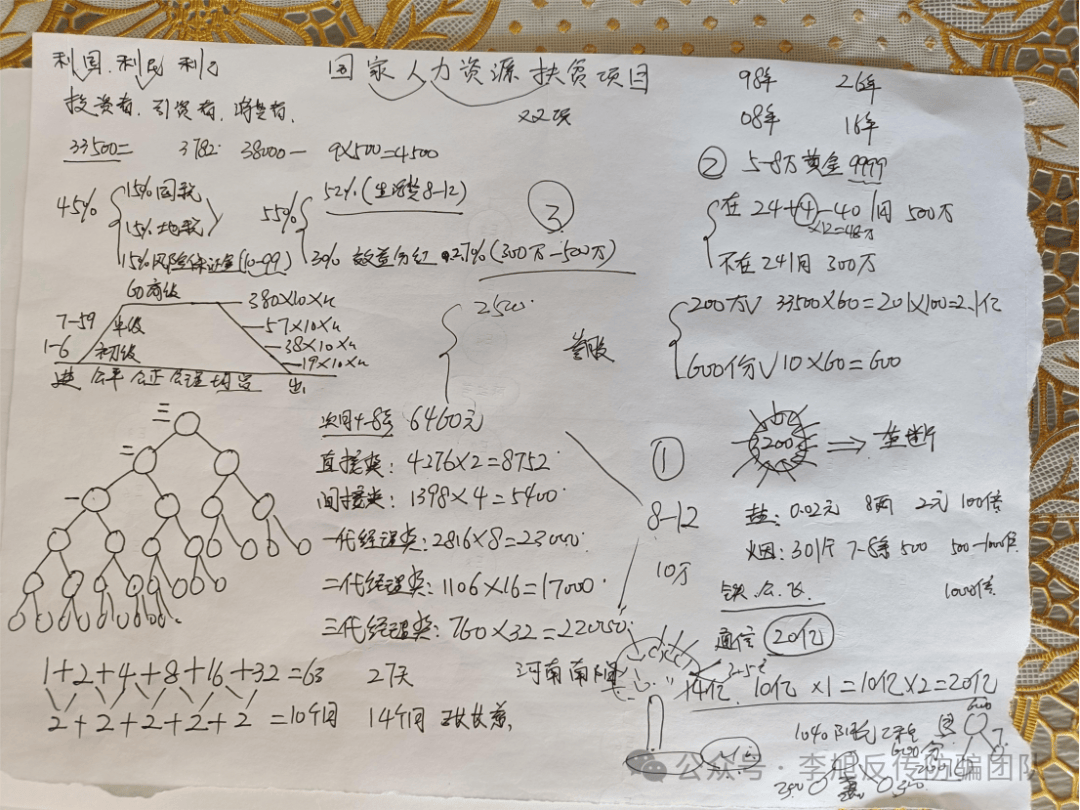 利国 利民 利己
国家人力资源扶贫项目
98年 26年
投资者 引资者
22项
08年 16年
33500= 3782 38000- 9×500=4500
② 5-8万黄金9999
45% 15%国税 55% 52%(生活费8-12) ③
15%地税
15%风险保证金(10-99) 30% 效益分红 27%(300万-500万)
在 24+④-40 1月 500万
×12=48万
不在 24 1月 300万
60高级 380×10×4
7-59 57×10×4
1-6 初级 38×10×4
19×10×4
进 公平 公正 公理 出
2500
200万√ 33500×60=201×100=2.1亿
600份√10×60=600
次月4-8号 6460元
三
二
一
直接奖:4276×2=8752
间接奖:1398×4=5400
一代经理奖:2816×8=23000
二代经理奖:1106×16=17000
三代经理奖:760×32=22050
①
8-12
10万
3200 ⇒ 垄断
盐:0.02元 8两 2元 100倍
烟:301斤 7-8条 500 500-1000倍
铁、公、飞 1000倍
通信 20亿
1+2+4+8+16+32=63 27天
河南南阳
3-5元
14亿 10亿×1=10亿×2=20亿
2+2+2+2+2=10个月 14个月
1040阳光工程
600份
公众号·李旭反传防骗团队